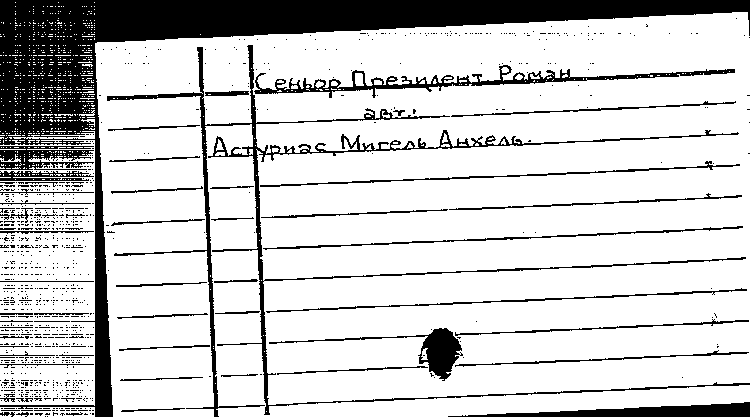 Сеньор Президент Роман
авт.:
Астуриас, Мигель Анхель.